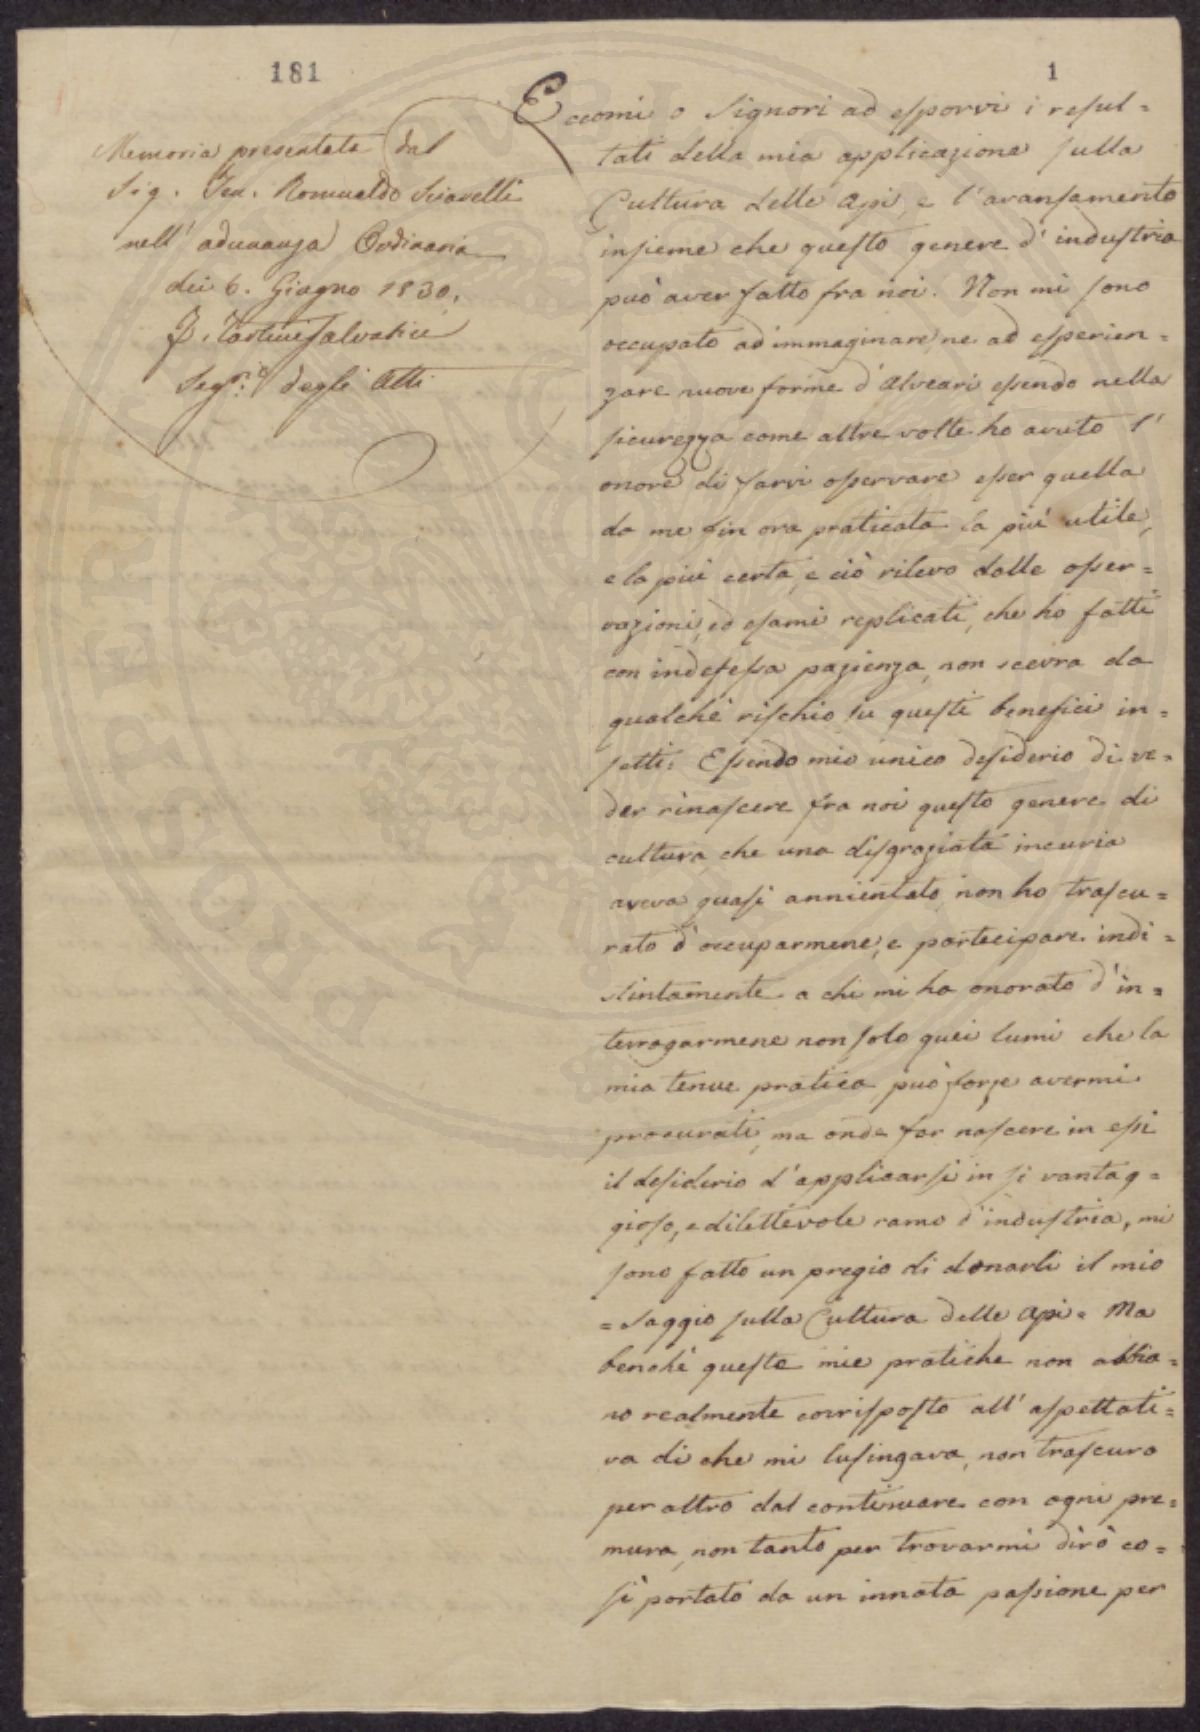 181
1
Memoria presentata dal
Sig. Romualdo
nell' adunanza Ordinaria
dei 6. Giugno 1830.
Segr.° degli Atti
Eccomi o Signori ad esporvi i resul=
tati della mia applicazione sulla
Cultura delle Api, e l'avansamento
insieme che questo genere d'industria
può aver fatto fra noi. Non mi sono
occupato ad immaginare, ne ad esperien=
zare nuove forme d'Alveari essendo nella
sicurezza come altre volte ho avuto l'
onore di farvi osservare esser quella
da me fin ora praticata la più utile,
e la più certa, e ciò rilevo dalle osser=
vazioni, ed esami replicati, che ho fatti
con indefessa pazienza, non scevra da
qualche rischio su questi benefici in=
setti: Essendo mio unico desiderio di ve=
der rinascere fra noi questo genere di
cultura, che una disgraziata incuria
aveva quasi annientato, non ho trascu=
rato d'occuparmene, e partecipare indi=
stintamente a chi mi ha onorato d'in=
terrogarmene non solo quei lumi che la
mia tenue pratica, può forse avermi
procurati, ma onde far nascere in essi
il desiderio d'applicarsi in sì vantag=
gioso, e dilettevole ramo d'industria, mi
sono fatto un pregio di donarli il mio
= Saggio sulla Cultura delle Api = Ma
benchè queste mie pratiche non abbia=
no realmente corrisposto all'aspettati=
va di che mi lusingava, non trascuro
per altro dal continuare con ogni pre=
mura, non tanto per trovarmi dirò co=
sì portato da un innata passione per
PROSPERITATI